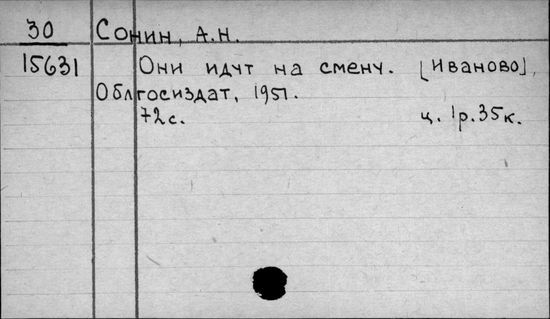 30 Сонин, А.Н.
15631 Они идут на смену. [Иваново],
Облгосиздат, 1951.
72с. ц. 1р.35к.